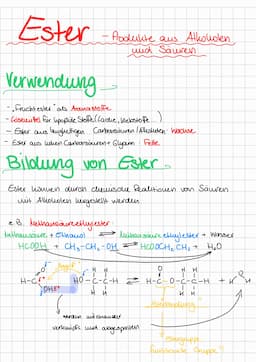 Ester - Produkte aus Alkoholen
und Säuren
Verwendung
- "Fruchtester" als Aromastoffe
- Lösemittel für lipophile Stoffe (Lacke, Klebstoffe...)
- Ester aus langkettigen Carbonsäuren/Alkoholen: Wachse
- Ester aus hohen Carbonsäuren + Glycerin: Fette
Bildung von Ester
Ester können durch chemische Reaktionen von Säuren
und Alkoholen hergestellt werden
z.B. Methansäureethylester
Methansäure + Ethanol ⇌ Methansäureethylester + Wasser
HCOOH + CH₃-CH₂-OH ⇌ HCOOCH₂CH₃ + H₂O
"Esterbindung"
werden aufeinander
verknüpft und abgespalten
Estergruppe
funktionelle Gruppe